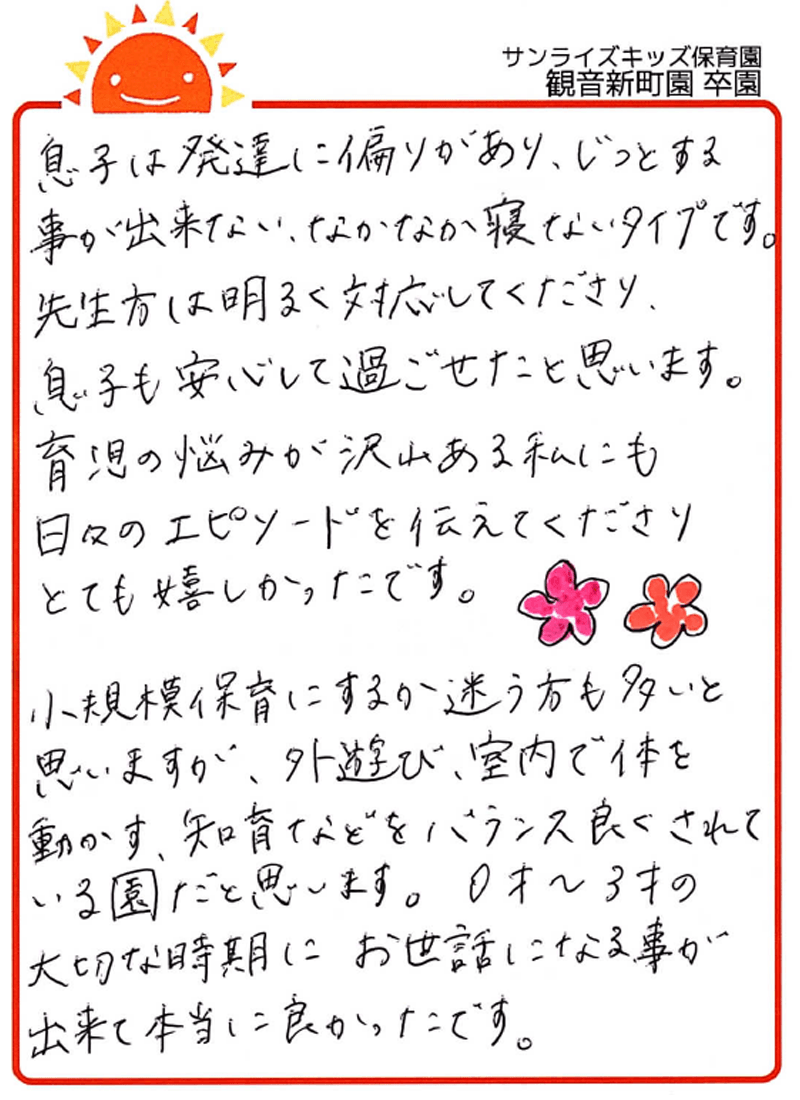 サンライズキッズ保育園
観音新町園 卒園
息子は発達に偏りがあり、じっとする
事が出来ない、なかなか寝ないタイプです。
先生方は明るく対応してくださり、
息子も安心して過ごせたと思います。
育児の悩みが沢山ある私にも
日々のエピソードを伝えてくださり
とても嬉しかったです。
小規模保育にするか迷う方も多いと
思いますが、外遊び、室内で体を
動かす、知育などをバランス良くされて
いる園だと思います。0才〜3才の
大切な時期に お世話になる事が
出来て本当に良かったです。